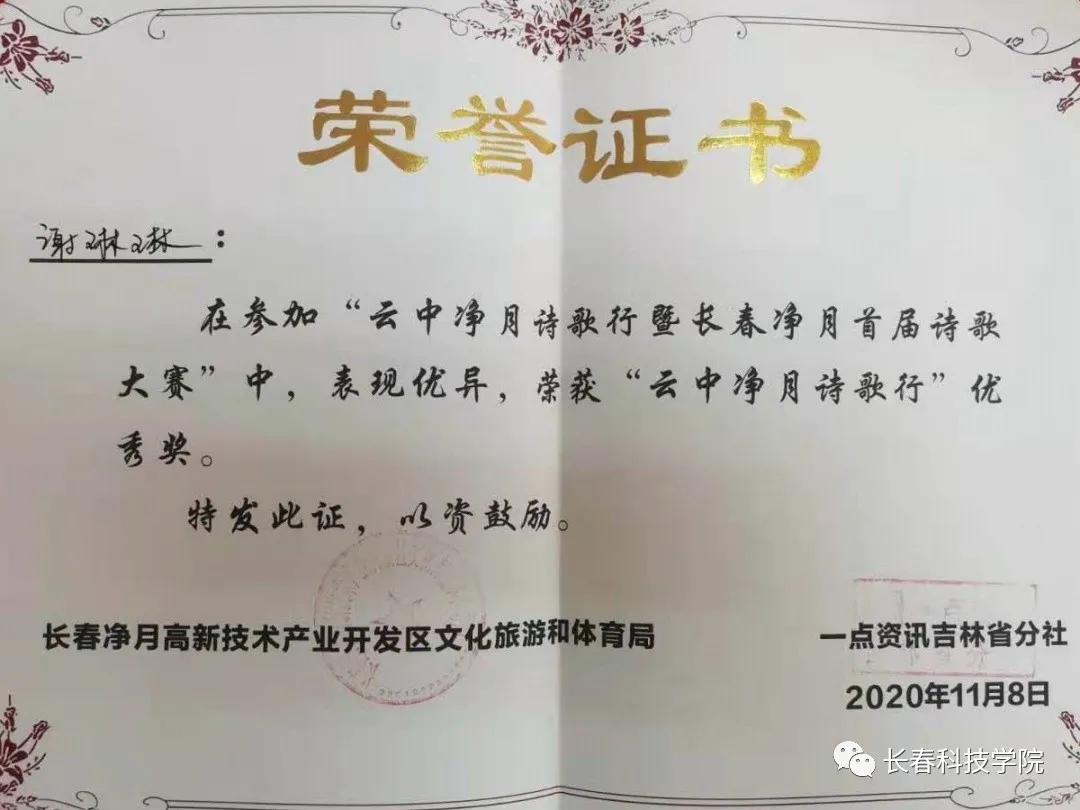 荣誉证书
谢琳琳：
在参加“云中净月诗歌行暨长春净月首届诗歌
大赛”中，表现优异，荣获“云中净月诗歌行”优
秀奖。
特发此证，以资鼓励。
长春净月高新技术产业开发区文化旅游和体育局
一点资讯吉林省分社
2020年11月8日
长春科技学院